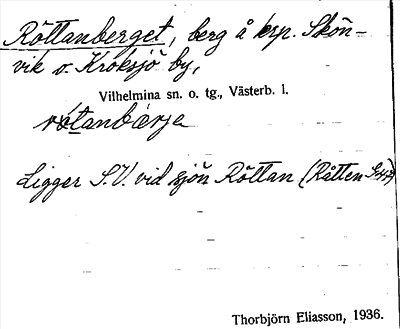 Röttanberget, berg å krp. Skön-
vik o. Kroksjö by,
Vilhelmina sn. o. tg., Västerb. l.
rötanbærje
Ligger S.V. vid sjön Röttan (Råtten
Thorbjörn Eliasson, 1936.